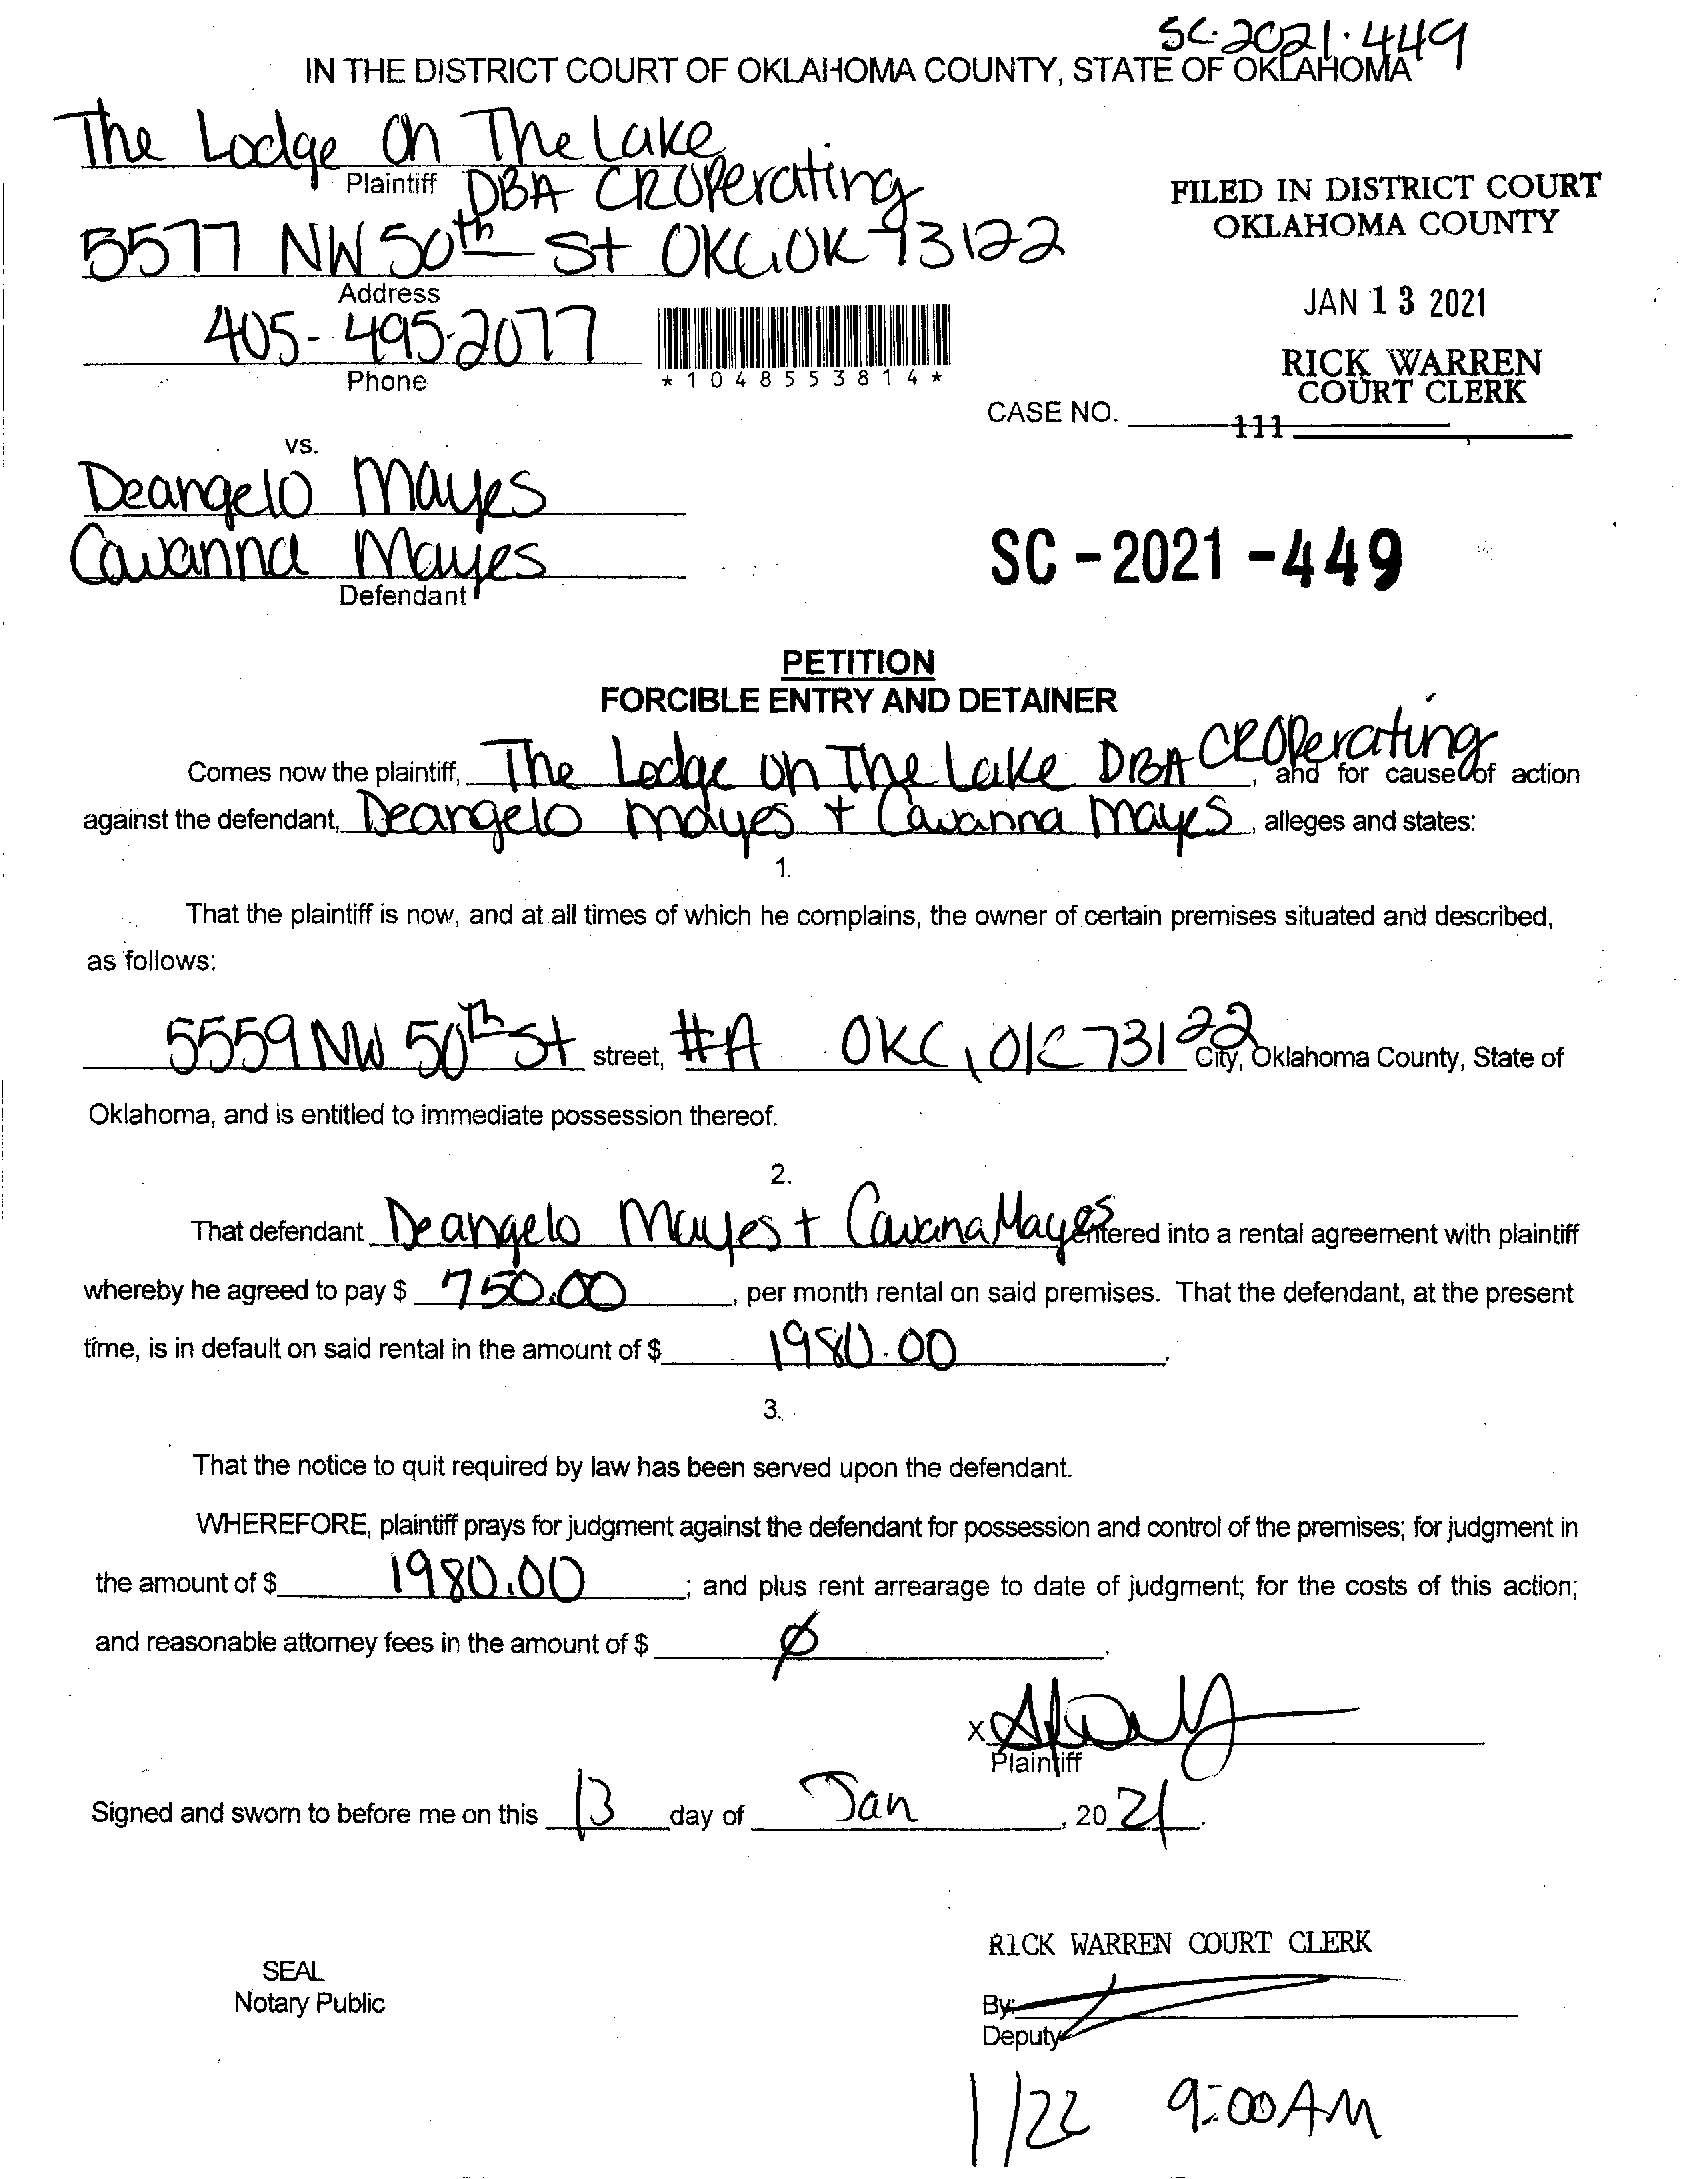 SC-2021-449
IN THE DISTRICT COURT OF OKLAHOMA COUNTY, STATE OF OKLAHOMA
The Lodge On The Lake
Plaintiff DBA CROperating
5577 NW 50th St OKC, OK 73122
Address
405-495-2077
Phone
*1048553814*
FILED IN DISTRICT COURT
OKLAHOMA COUNTY
JAN 13 2021
RICK WARREN
COURT CLERK
CASE NO.
111
vs.
Deangelo Mayes
Cavanna Mayes
Defendant
SC-2021-449
PETITION
FORCIBLE ENTRY AND DETAINER
Comes now the plaintiff, The Lodge On The Lake DBA CROperating, and for cause of action
against the defendant, Deangelo Mayes + Cavanna Mayes, alleges and states:
1.
That the plaintiff is now, and at all times of which he complains, the owner of certain premises situated and described,
as follows:
5559 NW 50th St street, #A OKC, OK 73122 City, Oklahoma County, State of
Oklahoma, and is entitled to immediate possession thereof.
2.
That defendant Deangelo Mayes + Cavana Mayes entered into a rental agreement with plaintiff
whereby he agreed to pay $ 750.00, per month rental on said premises. That the defendant, at the present
time, is in default on said rental in the amount of $ 1980.00.
3.
That the notice to quit required by law has been served upon the defendant.
WHEREFORE, plaintiff prays for judgment against the defendant for possession and control of the premises; for judgment in
the amount of $ 1980.00; and plus rent arrearage to date of judgment; for the costs of this action;
and reasonable attorney fees in the amount of $ ∅.
X
Plaintiff
Signed and sworn to before me on this 13 day of Jan, 20 21.
RICK WARREN COURT CLERK
SEAL
Notary Public
By:
Deputy
1/22 9:00AM